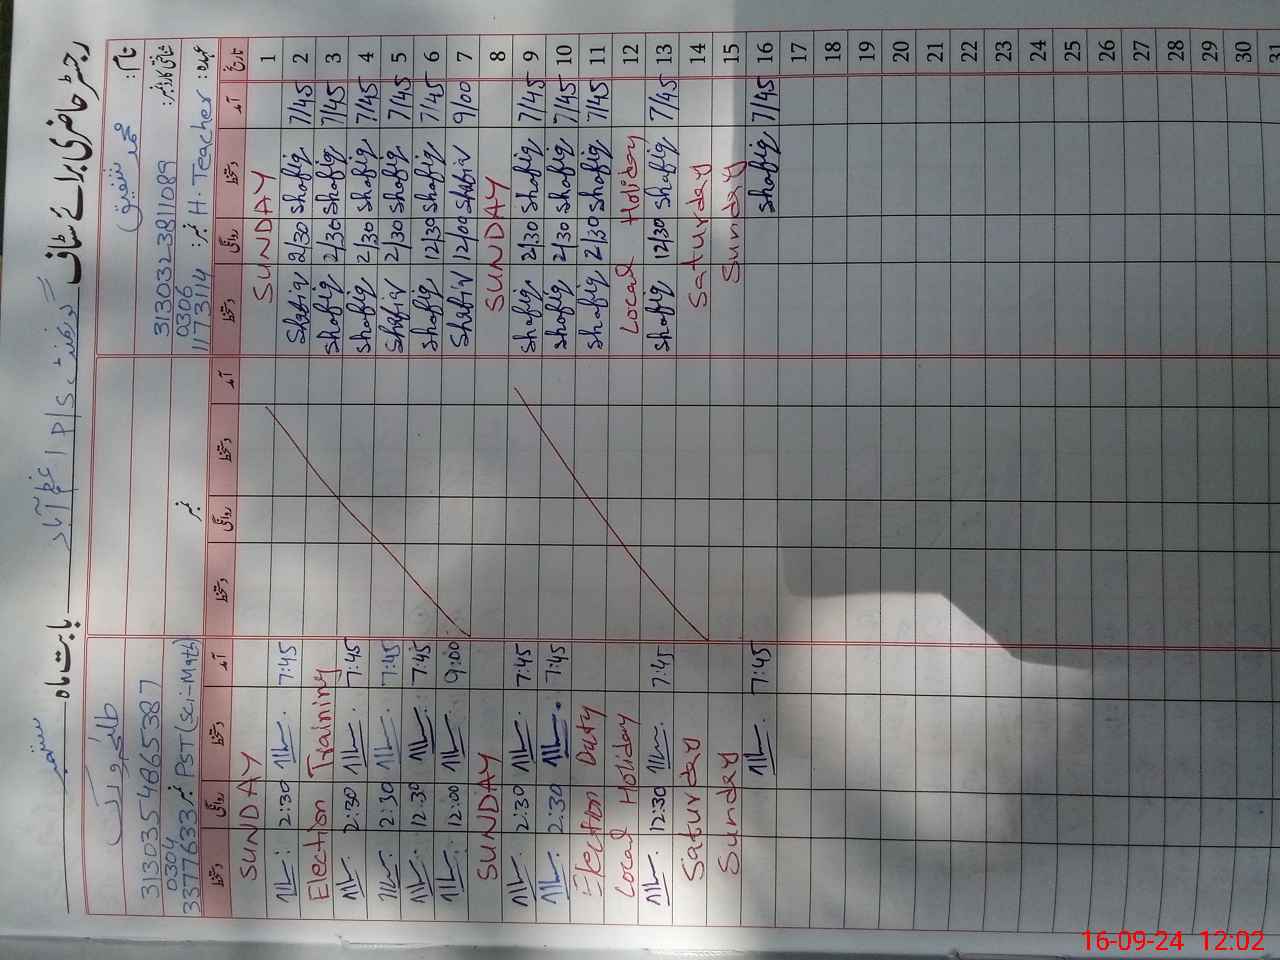 رجسٹر حاضری برائے سٹاف گورنمنٹ P/S بابت ماہ ستمبر
نام: محمد شفیق
شناختی کارڈ نمبر: 3130323811089
0306
عہدہ: H. Teacher نمبر: 1173114
نمبر
3130354865387
0304
PST (Sci-Math) نمبر 3377633
تاریخ آمد دستخط روانگی دستخط آمد دستخط روانگی دستخط آمد دستخط روانگی دستخط
1 SUNDAY SUNDAY
2 7/45 Shafiq 2/30 Shafiq 7:45 2:30
3 7/45 Shafiq 2/30 Shafiq Election Training
4 7/45 Shafiq 2/30 Shafiq 7:45 2:30
5 7/45 Shafiq 2/30 Shafiq 7:45 2:30
6 7/45 Shafiq 12/30 Shafiq 7:45 12:30
7 9/00 Shafiq 12/00 Shafiq 9:00 12:00
8 SUNDAY SUNDAY
9 7/45 Shafiq 2/30 Shafiq 7:45 2:30
10 7/45 Shafiq 2/30 Shafiq 7:45 2:30
11 7/45 Shafiq 2/30 Shafiq Election Duty
12 Local Holiday Local Holiday
13 7/45 Shafiq 12/30 Shafiq 7:45 12:30
14 Saturday Saturday
15 Sunday Sunday
16 7/45 Shafiq 7:45
17
18
19
20
21
22
23
24
25
26
27
28
29
30
31
16-09-24 12:02